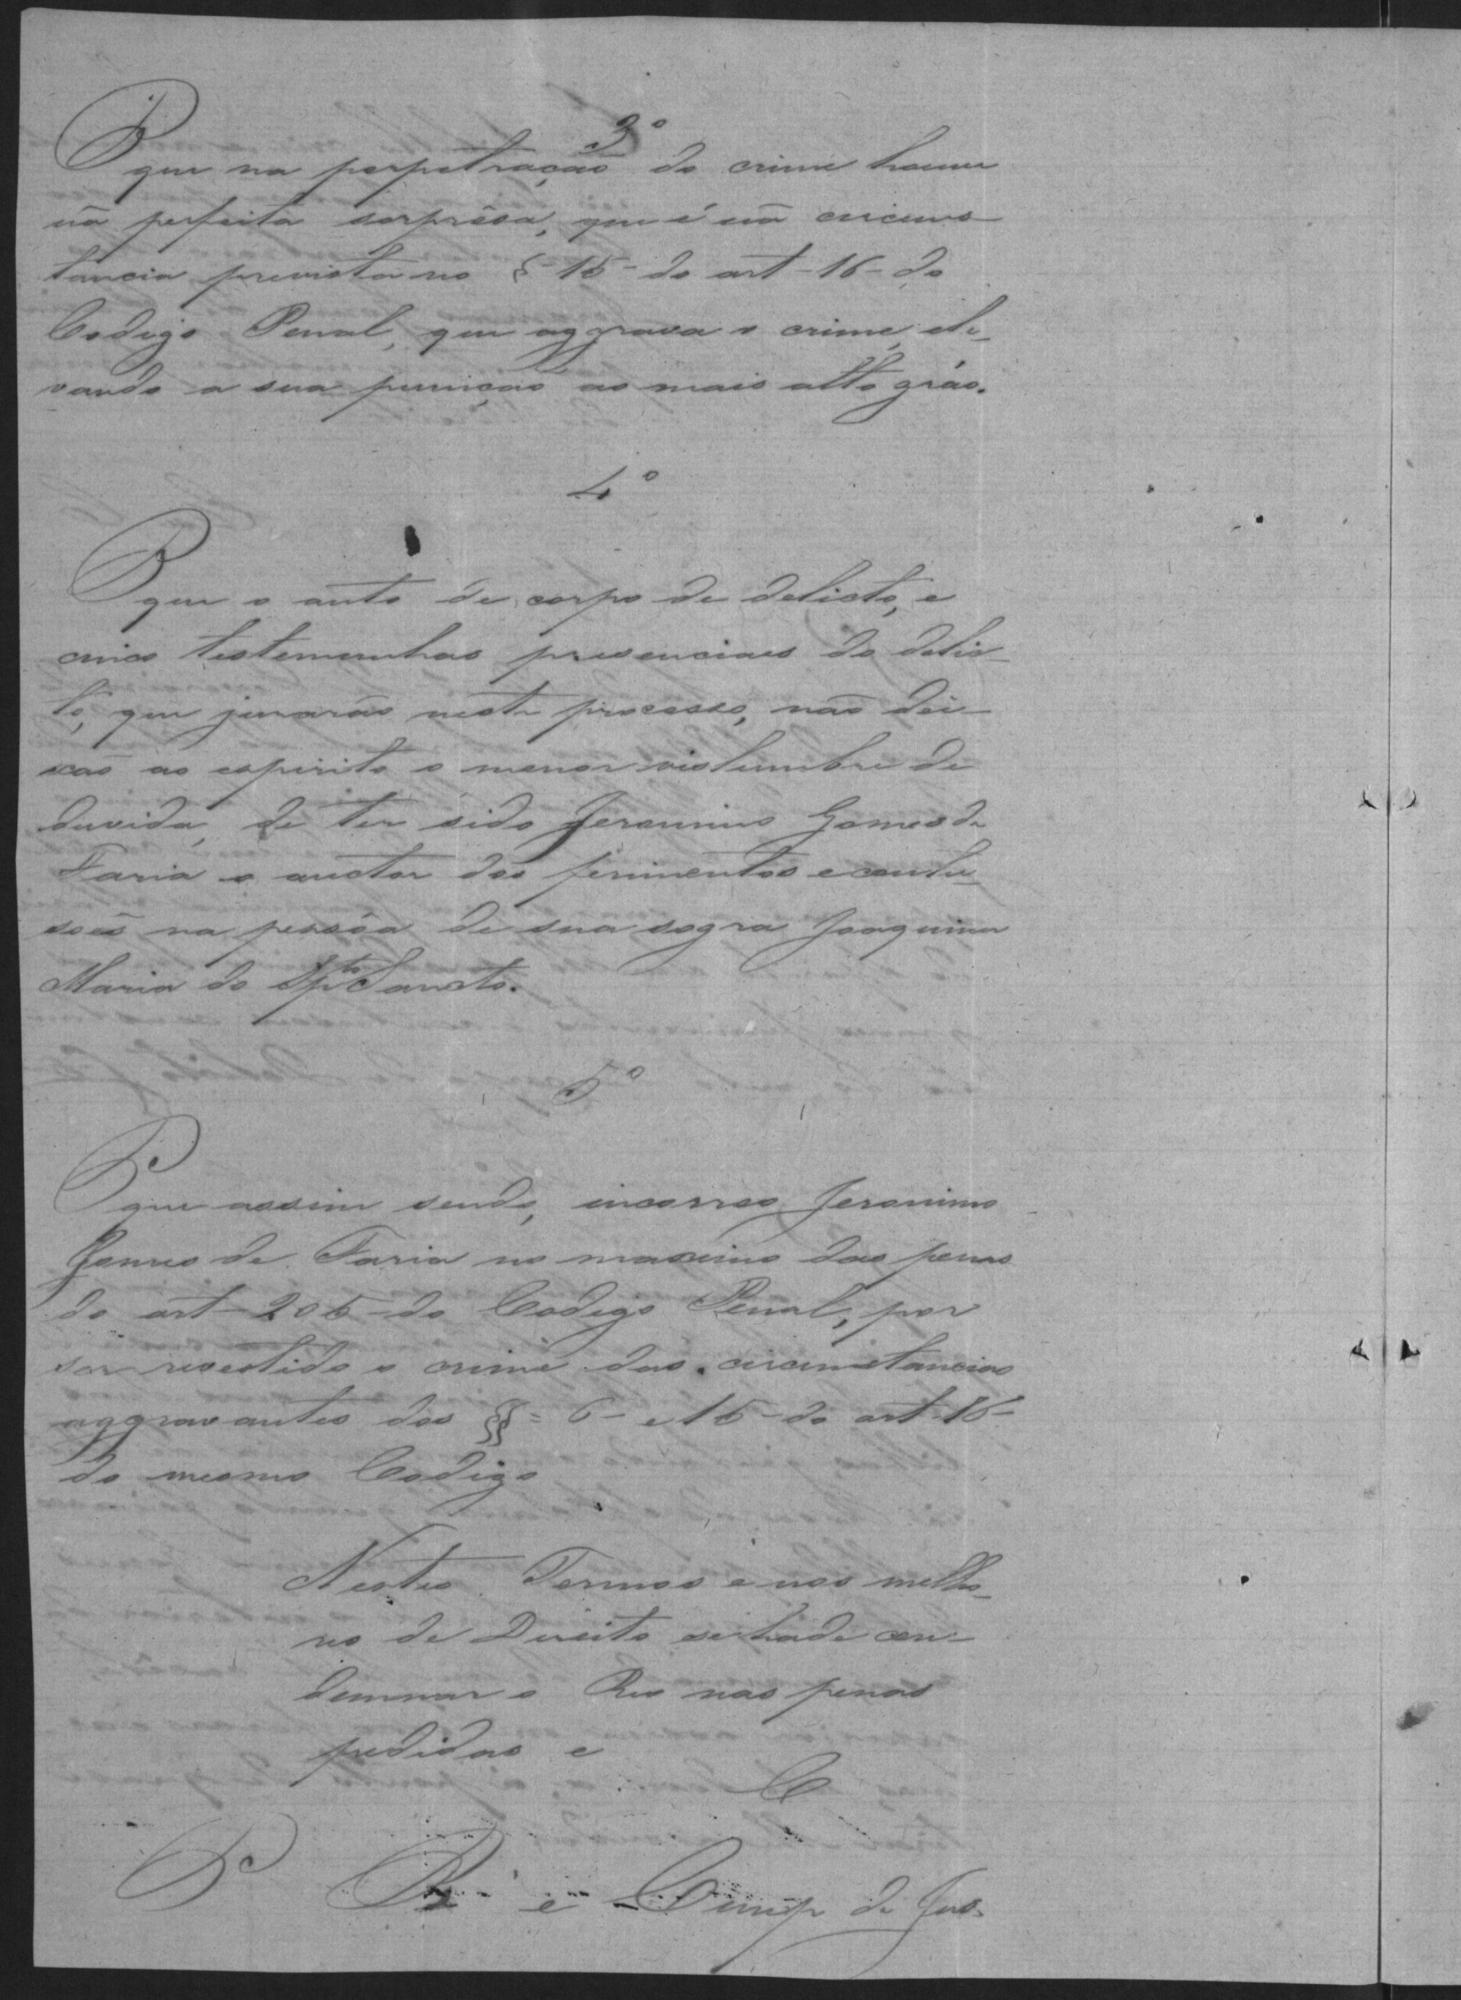 3º
P que na perpetração do crime houve
uã perfeita sorprêsa, que é uã circuns-
tancia prevista no § 15 - do art - 16 - do
Codigo Penal, que aggrava o crime, ele-
vando a sua punição ao mais alto gráo.
4º
P que o auto de corpo de delicto, e
cinco testemunhas presenciaes do delic-
to, que jurarão neste processo, não dei-
xão ao espirito o menor vislumbre de
duvida, de ter sido Jeronimo Gomes de
Faria o auctor dos ferimentos e contu-
soẽs na pessôa de sua sogra Joaquina
Maria do Sptº Sancto.
5º
P que assim sendo, incorreo Jeronimo
Gomes de Faria no maximo das penas
do art - 205 - do Codigo Penal, por
ser revestido o crime das circunstancias
aggravantes dos §§ = 6 - e 15 - do art - 16 -
do mesmo Codigo
Nestes Termos e nos melho-
res de Direito se hade con-
demnar o Reo nas penas
pedidas e
C
P R e Cump de Jus.